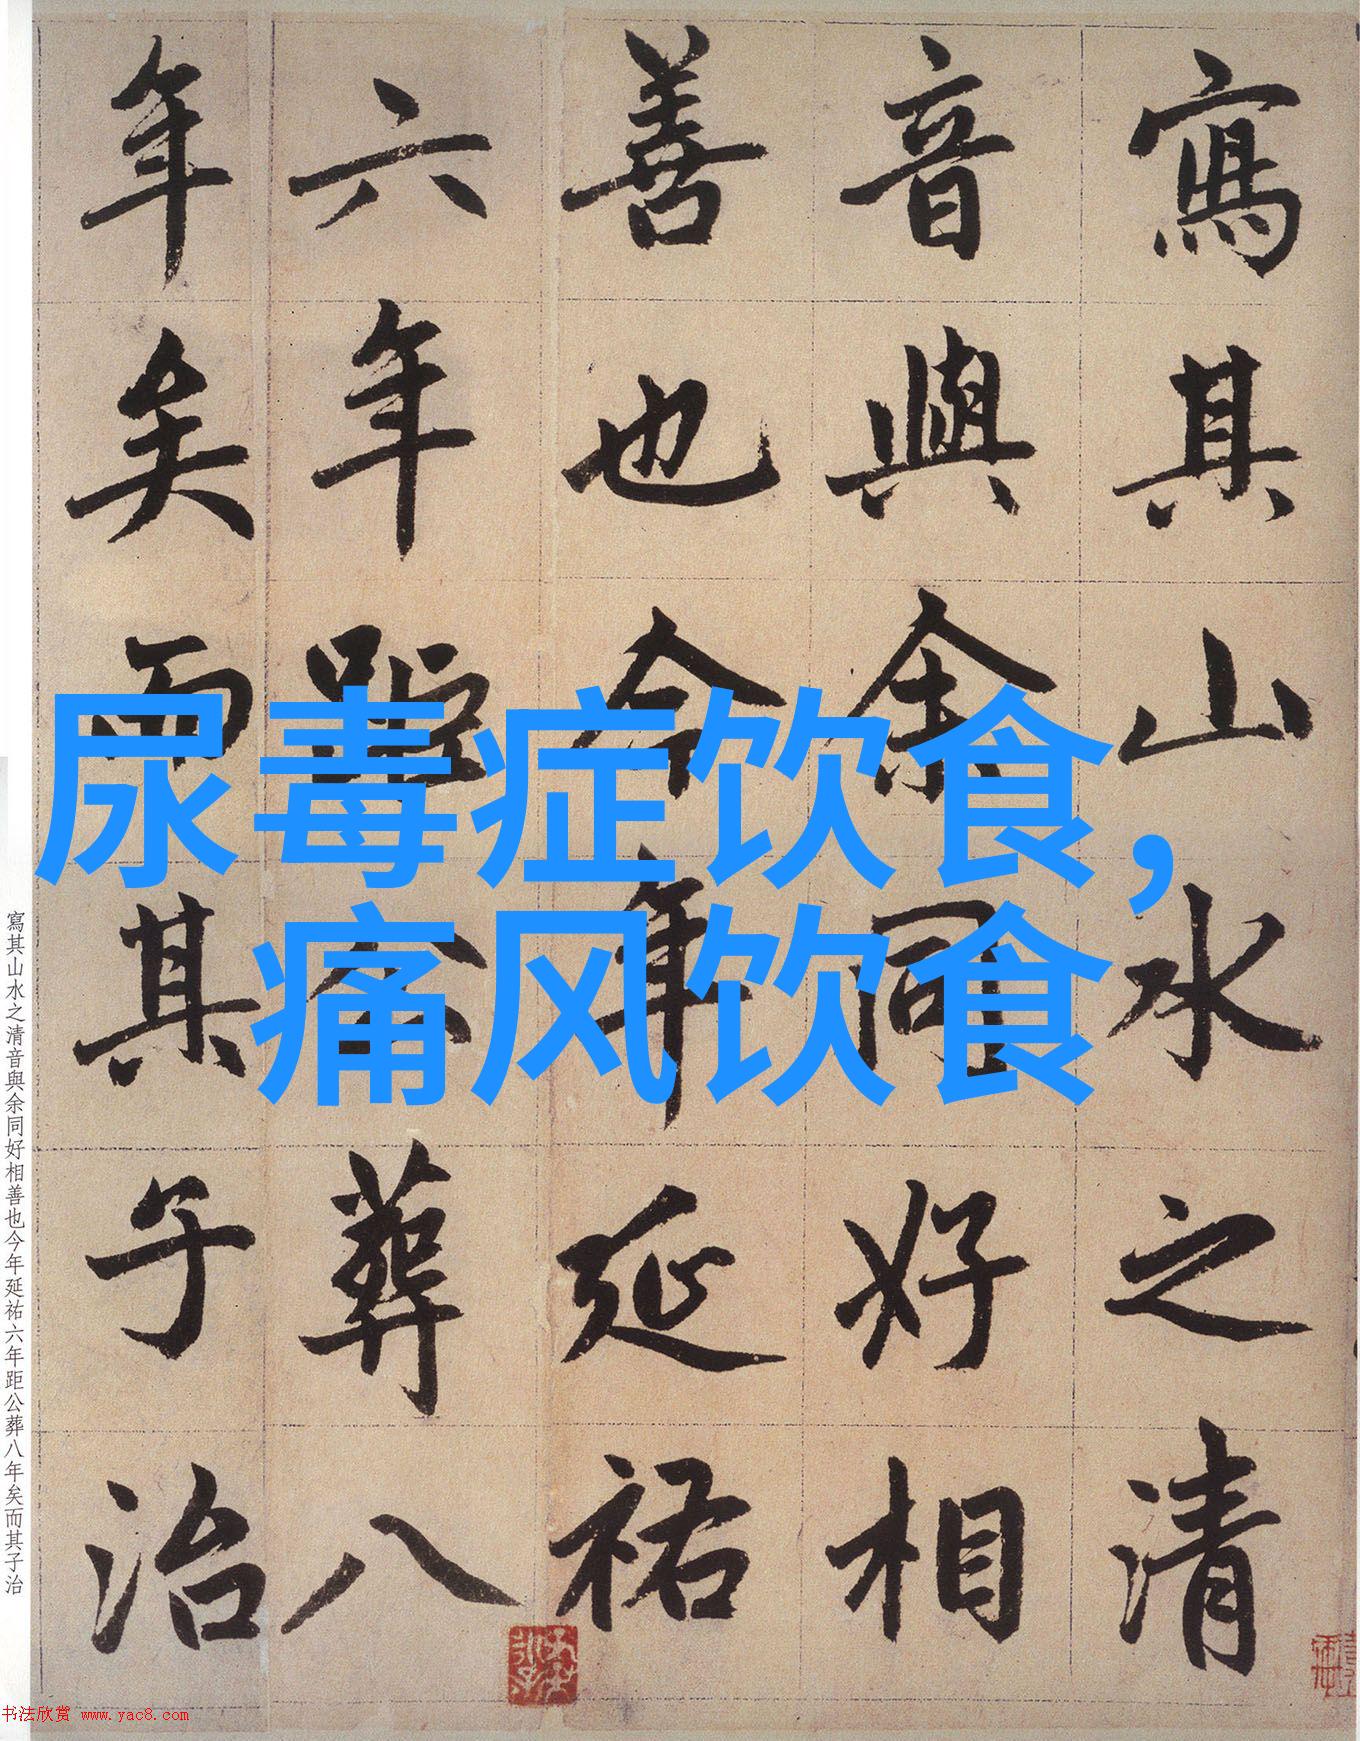 尿毒症饮食,
痛风饮食
寫其山水之清
音與余同好相
善也今年延祐
六年距公葬八
年矣而其子治
寫其山水之清音與余同好相善也今年延祐六年距公葬八年矣而其子治
书法欣赏 www.yac8.com